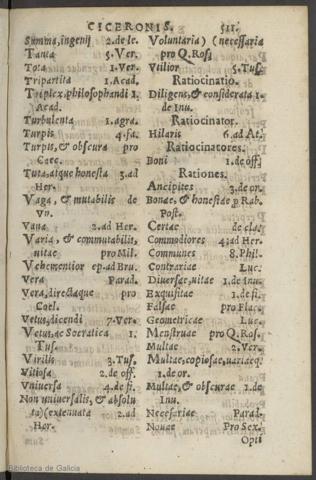 CICERONIS. 511.
Summa, ingenij 2. de le.
Tanta 5. Ver.
Tota 1. Ver.
Tripartita 1. Acad.
Triplex, philosophandi 1.
Acad.
Turbulenta 1. agra.
Turpis 4. fa.
Turpis, & obscura pro
Caec.
Tuta, atque honesta 3. ad
Her.
Vaga, & mutabilis de
Vn.
Vana 2. ad Her.
Varia, & commutabilis,
uitae pro Mil.
Vehementior ep. ad Bru.
Vera Parad.
Vera, directaque pro
Coel.
Vetus, dicendi 7. Ver.
Vetus, ac Socratica 1.
Tus.
Virilis 3. Tus.
Vitiosa 2. de off.
Vniuersa 4. de fi.
Non uniuersalis, & absolu
ta) (extenuata 2. ad
Her.
Voluntaria) (necessaria
pro Q. Ros.
Vtilior 5. Tus.
Ratiocinatio.
Diligens, & considerata 1.
de Inu.
Ratiocinator.
Hilaris 6. ad At.
Ratiocinatores.
Boni 1. de off.
Rationes.
Ancipites 3. de or.
Bonae, & honestae p Rab.
Post.
Certae de clar.
Commodiores 4. ad Her.
Communes 8. Phil.
Contrariae Luc.
Diuersae, uitae 1. de Inu.
Exquisitae 1. de fi.
Falsae pro Flac.
Geometricae Luc.
Menstruae pro Q. Ros.
Multae 2. Ver.
Multae, copiosae, uariaeq;
1. de or.
Multae, & obscurae 1. de
Inu.
Necessariae Parad.
Nouae Pro Sex.
Opti
Biblioteca de Galicia